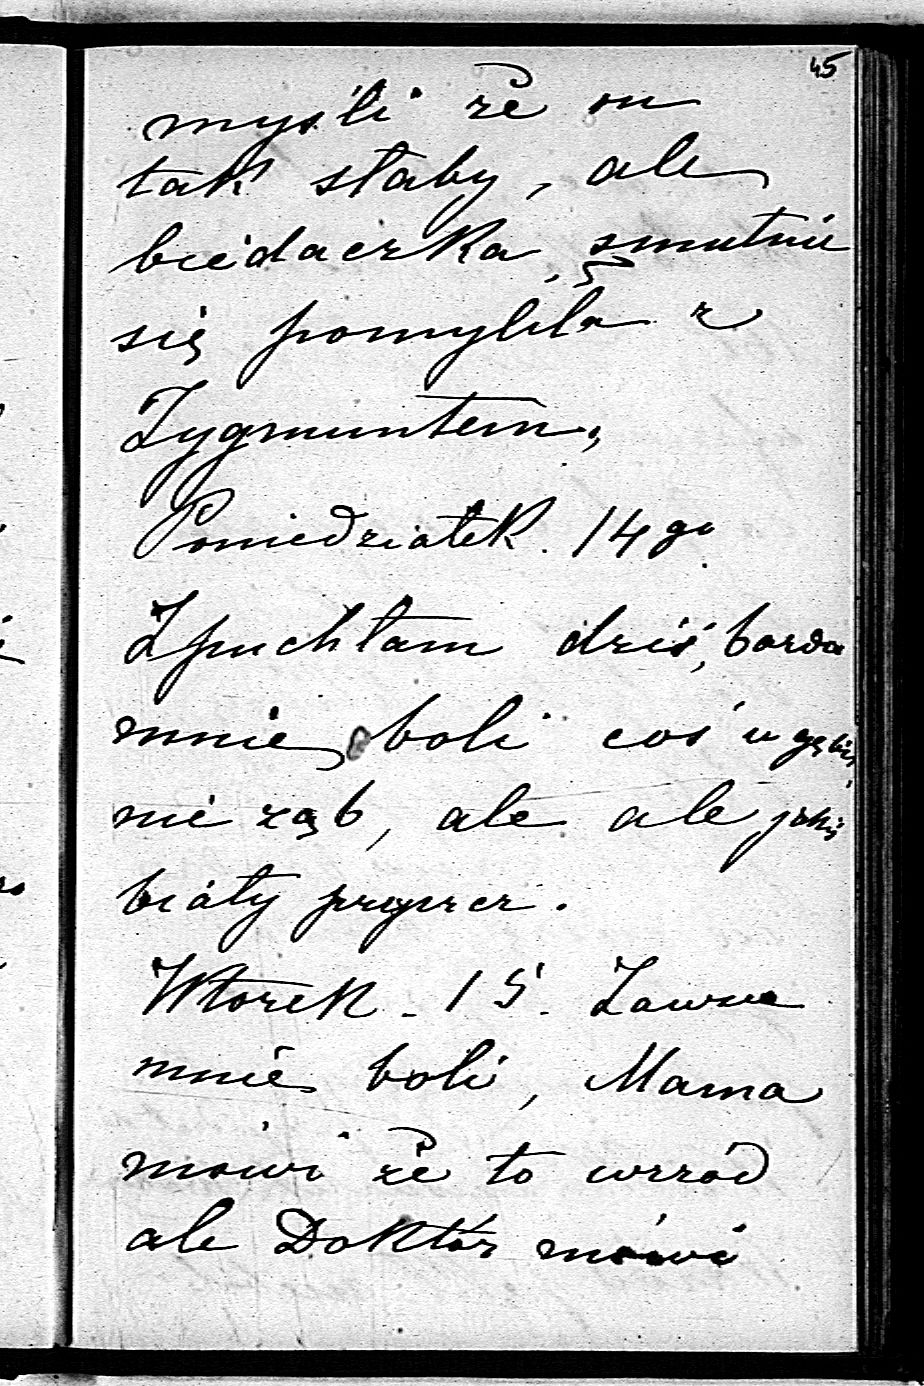 45
myśli że on
tak słaby, ale
biédaczka, smutnie
się pomyliła z
Zygmuntem,
Poniedziałek. 14go.
Spuchłam dziś, bardzo
mnie boli coś w gębie,
nie ząb, ale ale jakiś
biały pryszcz.
Wtorek. 15. Zawsze
mnie boli, Mama
mówi że to wrzód
ale Doktór mówi